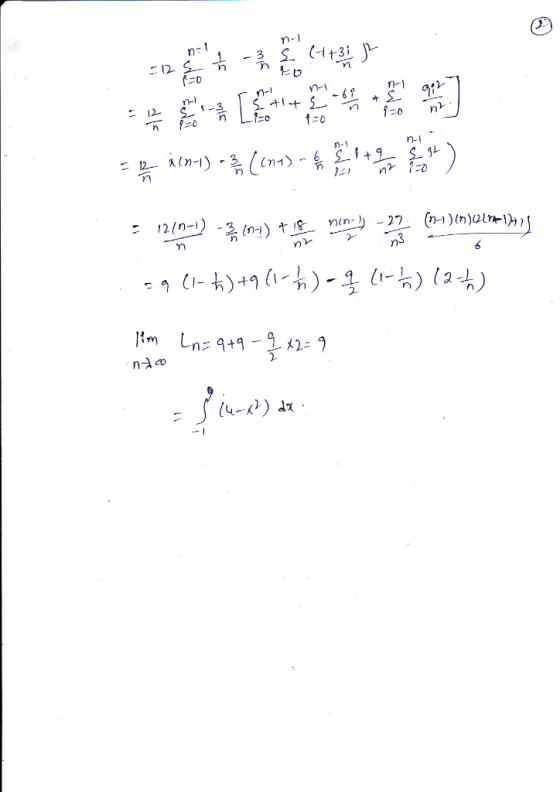 2
= 12 \sum_{i=0}^{n-1} \frac{1}{n} - \frac{3}{n} \sum_{i=0}^{n-1} (-1+\frac{3i}{n})^2
= \frac{12}{n} \sum_{i=0}^{n-1} 1 - \frac{3}{n} [ \sum_{i=0}^{n-1} +1 + \sum_{i=0}^{n-1} -\frac{6i}{n} + \sum_{i=0}^{n-1} \frac{9i^2}{n^2} ]
= \frac{12}{n} x(n-1) - \frac{3}{n} ((n-1) - \frac{6}{n} \sum_{i=1}^{n-1} i + \frac{9}{n^2} \sum_{i=0}^{n-1} i^2 )
= \frac{12(n-1)}{n} - \frac{3}{n} (n-1) + \frac{18}{n^2} \frac{n(n-1)}{2} - \frac{27}{n^3} \frac{(n-1)(n)(2(n-1)+1)}{6}
= 9 (1-\frac{1}{n}) + 9 (1-\frac{1}{n}) - \frac{9}{2} (1-\frac{1}{n}) (2-\frac{1}{n})
\lim_{n→∞} L_n = 9+9 - \frac{9}{2} x2 = 9
= \int_{-1} (4-x^2) dx.